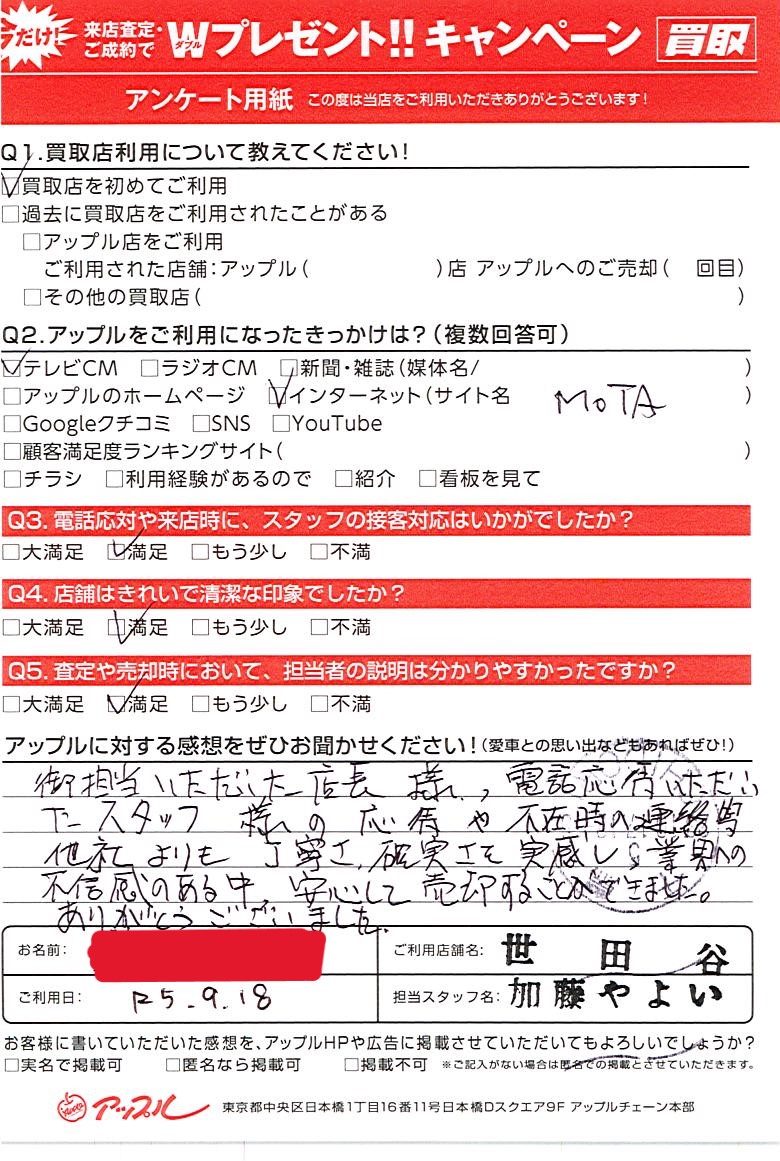 今だけ!
来店査定・
ご成約で
Wプレゼント!! キャンペーン 買取
ダブル
アンケート用紙 この度は当店をご利用いただきありがとうございます!
Q1.買取店利用について教えてください!
☑買取店を初めてご利用
□過去に買取店をご利用されたことがある
□アップル店をご利用
ご利用された店舗:アップル( )店 アップルへのご売却( 回目)
□その他の買取店( )
Q2.アップルをご利用になったきっかけは?(複数回答可)
☑テレビCM □ラジオCM □新聞・雑誌(媒体名/ )
□アップルのホームページ ☑インターネット(サイト名 MOTA )
□Googleクチコミ □SNS □YouTube
□顧客満足度ランキングサイト( )
□チラシ □利用経験があるので □紹介 □看板を見て
Q3.電話応対や来店時に、スタッフの接客対応はいかがでしたか?
□大満足 ☑満足 □もう少し □不満
Q4.店舗はきれいで清潔な印象でしたか?
□大満足 ☑満足 □もう少し □不満
Q5.査定や売却時において、担当者の説明は分かりやすかったですか?
□大満足 ☑満足 □もう少し □不満
アップルに対する感想をぜひお聞かせください!(愛車との思い出などもあればぜひ!)
御担当いただいた店長様、電話応待いただい
たスタッフ様への応待や不在時の連絡等
他社よりも丁寧さ、確実さを実感し、業界への
不信感のある中、安心して売却することができました。
ありがとうございました。
お名前:
ご利用店舗名: 世田谷
ご利用日: R5.9.18
担当スタッフ名: 加藤やよい
お客様に書いていただいた感想を、アップルHPや広告に掲載させていただいてもよろしいでしょうか?
□実名で掲載可 □匿名なら掲載可 □掲載不可 ※ご記入がない場合は匿名での掲載とさせていただきます。
アップル 東京都中央区日本橋1丁目16番11号日本橋Dスクエア9F アップルチェーン本部